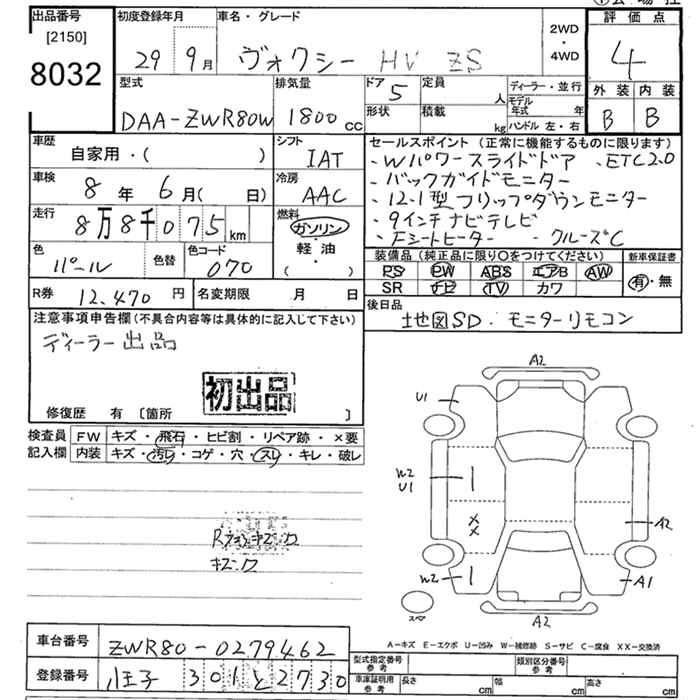 出品番号
[2150]
8032
初度登録年月
29 9月
車名・グレード
ヴォクシー HV ZS
2WD
・
4WD
評価点
4
外装 内装
B B
型式
DAA-ZWR80W
排気量
1800 cc
ドア
5
形状
定員
人
積載
kg
ディーラー・並行
モデル年式 年
ハンドル 左・右
車歴
自家用・( )
シフト
IAT
車検
8年 6月( 日)
冷房
AAC
走行
8万8千075km
燃料
ガソリン
・
軽・油
・
( )
色
パール
色替
色コード
070
R券
12,470円
名変期限 月 日
セールスポイント(正常に機能するものに限ります)
・Wパワースライドドア ・ETC2.0
・バックガイドモニター
・12.1型フリップダウンモニター
・9インチナビテレビ
・Fシートヒーター ・クルーズC
装備品(純正品に限り○をつけてください)
新車保証書
PS PW ABS エアB AW
SR ナビ TV カワ
有・無
後日品
地図SD・モニターリモコン
注意事項申告欄(不具合内容等は具体的に記入して下さい)
ディーラー出品
初出品
修復歴 有[箇所 ]
検査員記入欄
FW キズ・飛石・ヒビ割・リペア跡・×要
内装 キズ・汚れ・コゲ・穴・スレ・キレ・破レ
キズ・ワ
A2
U1
W2
U1
X
X
A2
W2
A1
A2
スペア
A-キズ E-エクボ U-凹み W-補修跡 S-サビ C-腐食 XX-交換済
車台番号
ZWR80-0279462
登録番号
八王子 301 と 2730
型式指定番号
参考
類別区分番号
参考
車庫証明用
参考
長さ cm 幅 cm 高さ cm